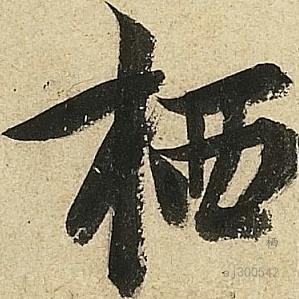 栖
栖
aj300542